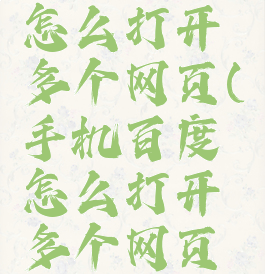 怎么打开
多个网页(
手机百度
怎么打开
多个网页